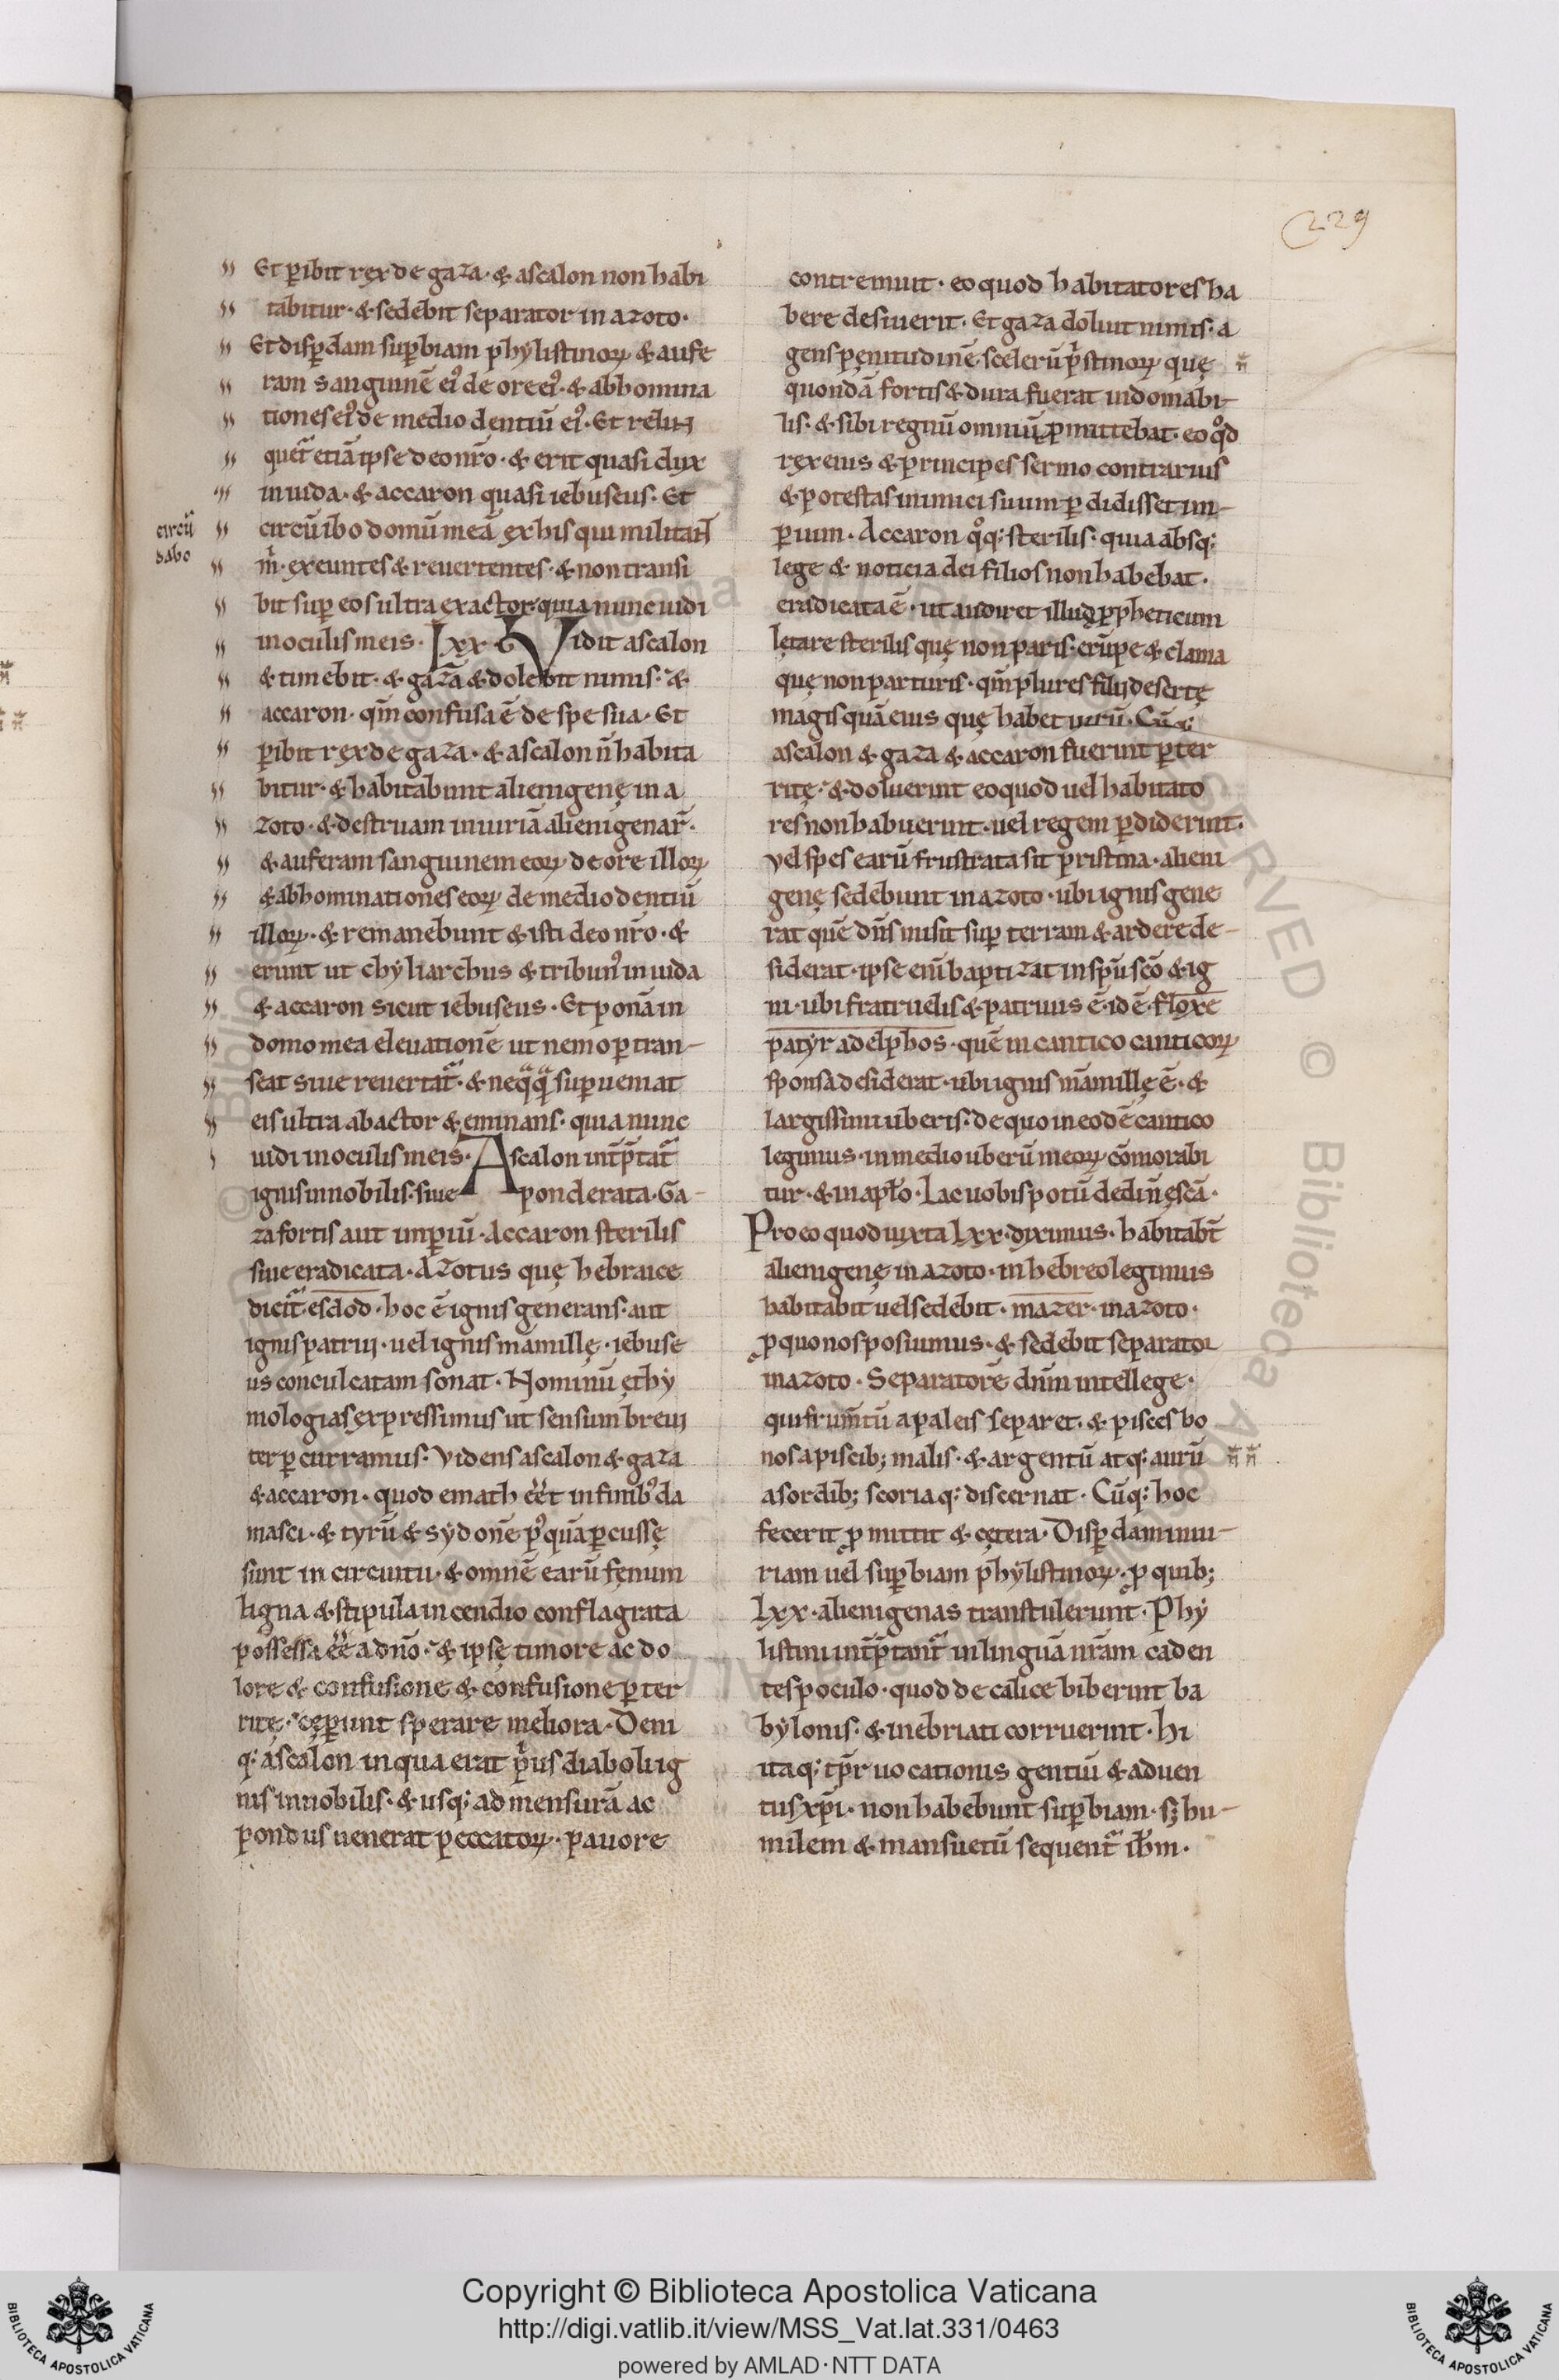 229
Et p̱ibit rex de gaza · & ascalon non habi
tabitur · & sedebit separator in azoto ·
Et disp̱dam sup̱biam phẏlistinoꝝ & aufe
ram sanguinē eiꝰ de ore eiꝰ · & abhomina
tiones eiꝰ de medio dentiū eiꝰ · Et relin
quet᷑ etiā ipse deo nr̄o · & erit quasi dux
in iuda · & accaron quasi iebuseus · Et
circū ibo domū meā ex his qui militant
circū
dabo
m̍ · exeuntes & reuertentes · & non transi
bit sup̱ eos ultra exactor · quia nunc uidi
in oculis meis · Lxx · Vidit ascalon
& timebit · & gaza & dolebit nimis · &
accaron · qm̄ confusa ē de spe sua · Et
p̱ibit rex de gaza · & ascalon n̄ habita
bitur · & habitabunt alienigenę in a
zoto · & destruam iniuriā alienigenar̄ ·
& auferam sanguinem eoꝝ de ore illoꝝ
& abhominationes eoꝝ de medio dentiū
illoꝝ · & remanebunt & isti deo nr̄o · &
erunt ut chẏliarchus & tribunꝰ in iuda
& accaron sicut iebuseus · Et ponā in
domo mea eleuationē ut nemo p̱tran-
seat siue reuertat᷑ · & neqͣqͣ sup̱ueniat
eis ultra abactor & eminans · quia nunc
uidi in oculis meis · Ascalon int̄p̄tat᷑
ignis innobilis · siue ponderata · Ga-
za fortis aut imp̱iū · Accaron sterilis
siue eradicata · Azotus quę hebraice
dicit᷑ · esdod · hoc ē ignis generans · aut
ignis patrui · uel ignis mamillę · iebuse
us conculcatam sonat · Nominū ethẏ
mologias expressimus ut sensum breui
ter p̱curramus · Videns ascalon & gaza
& accaron · quod emath eēt in finibꝰ da
masci · & tyrū & sẏdonē pꝰquā p̱cussę
sunt in circuitu · & omnē earū fęnum
ligna & stipula incendio conflagrata
possessa eē a dn̄o · & ipsę timore ac do
lore & confusione & confusione p̱ter
ritę · cęp̱unt sperare meliora · Deni
q; ascalon in qua erat pͥus diaboli ig
nis innobilis · & usq; ad mensurā ac
pondus uenerat peccatoꝝ · pauore
contremuit · eo quod habitatores ha
bere desiuerit · Et gaza doluit nimis · a
gens pęnitudinē scelerū pͥstinoꝝ quę
quondā fortis & dura fuerat indomabi-
lis · & sibi regnū omniū ꝓmittebat · eo qͦd
rex eius & principes sermo contrarius
& potestas inimici suum p̱didisset im-
p̱ium · Accaron qͦq; sterilis · quia absq;
lege & noticia dei filios non habebat ·
eradicata ē · ut audiret illud ꝓpheticum
lętare sterilis quę non paris · erūpe & clama
quę non parturis · qm̄ plures filij desertę
magis quā eius quę habet uirū · Cūq;
ascalon & gaza & accaron fuerint p̱ter
ritę · & doluerint eo quod uel habitato
res non habuerint · uel regem p̱diderint ·
vel spes earū frustrata sit pristina · alieni
genę sedebunt in azoto · ubi ignis gene
rat quē dn̄s misit sup̱ terram & ardere de-
siderat · ipse eni baptizat in sp̄u sc̄o & ig
ni · ubi fratruelis & patruus ē · id ē · floxe
patyr adelphos · quē in cantico canticoꝝ
sponsa desiderat · ubi ignis mamillę ē · &
largissimi uberis · de quo in eodē cantico
legimus · in medio uberū meoꝝ cōmorabi
tur · & in aplo · Lac uobis potū dedi n̄ escā ·
Pro eo quod iuxta Lxx · diximus · habitabt̄
alienigenę in azoto · in hebreo legimus
habitabit uel sedebit · mazer · in azoto ·
ꝓ quo nos posuimus · & sedebit separator
in azoto · Separatorē dn̄m intellege ·
qui frum̄tū a paleis separet · & pisces bo
nos a piscib; malis · & argentū atq; aurū
a sordib; scoriaq; discernat · Cūq; hoc
fecerit ꝓmittit & cętera · Disp̱dam iniu-
riam uel sup̱biam phẏlistinoꝝ · ꝓ quib;
Lxx · alienigenas transtulerunt · Phẏ
listini int̄p̄tant᷑ in linguā nr̄am caden
tes poculo · quod de calice biberint ba
bẏlonis · & inebriati corruerint · Hi
itaq; tp̄r uocationis gentiū & aduen
tus xp̄i · non habebunt sup̱biam · sꝫ hu-
milem & mansuetū sequent᷑ ih̄m ·
Copyright © Biblioteca Apostolica Vaticana
http://digi.vatlib.it/view/MSS_Vat.lat.331/0463
powered by AMLAD · NTT DATA
BIBLIOTECA APOSTOLICA VATICANA
BIBLIOTECA APOSTOLICA VATICANA